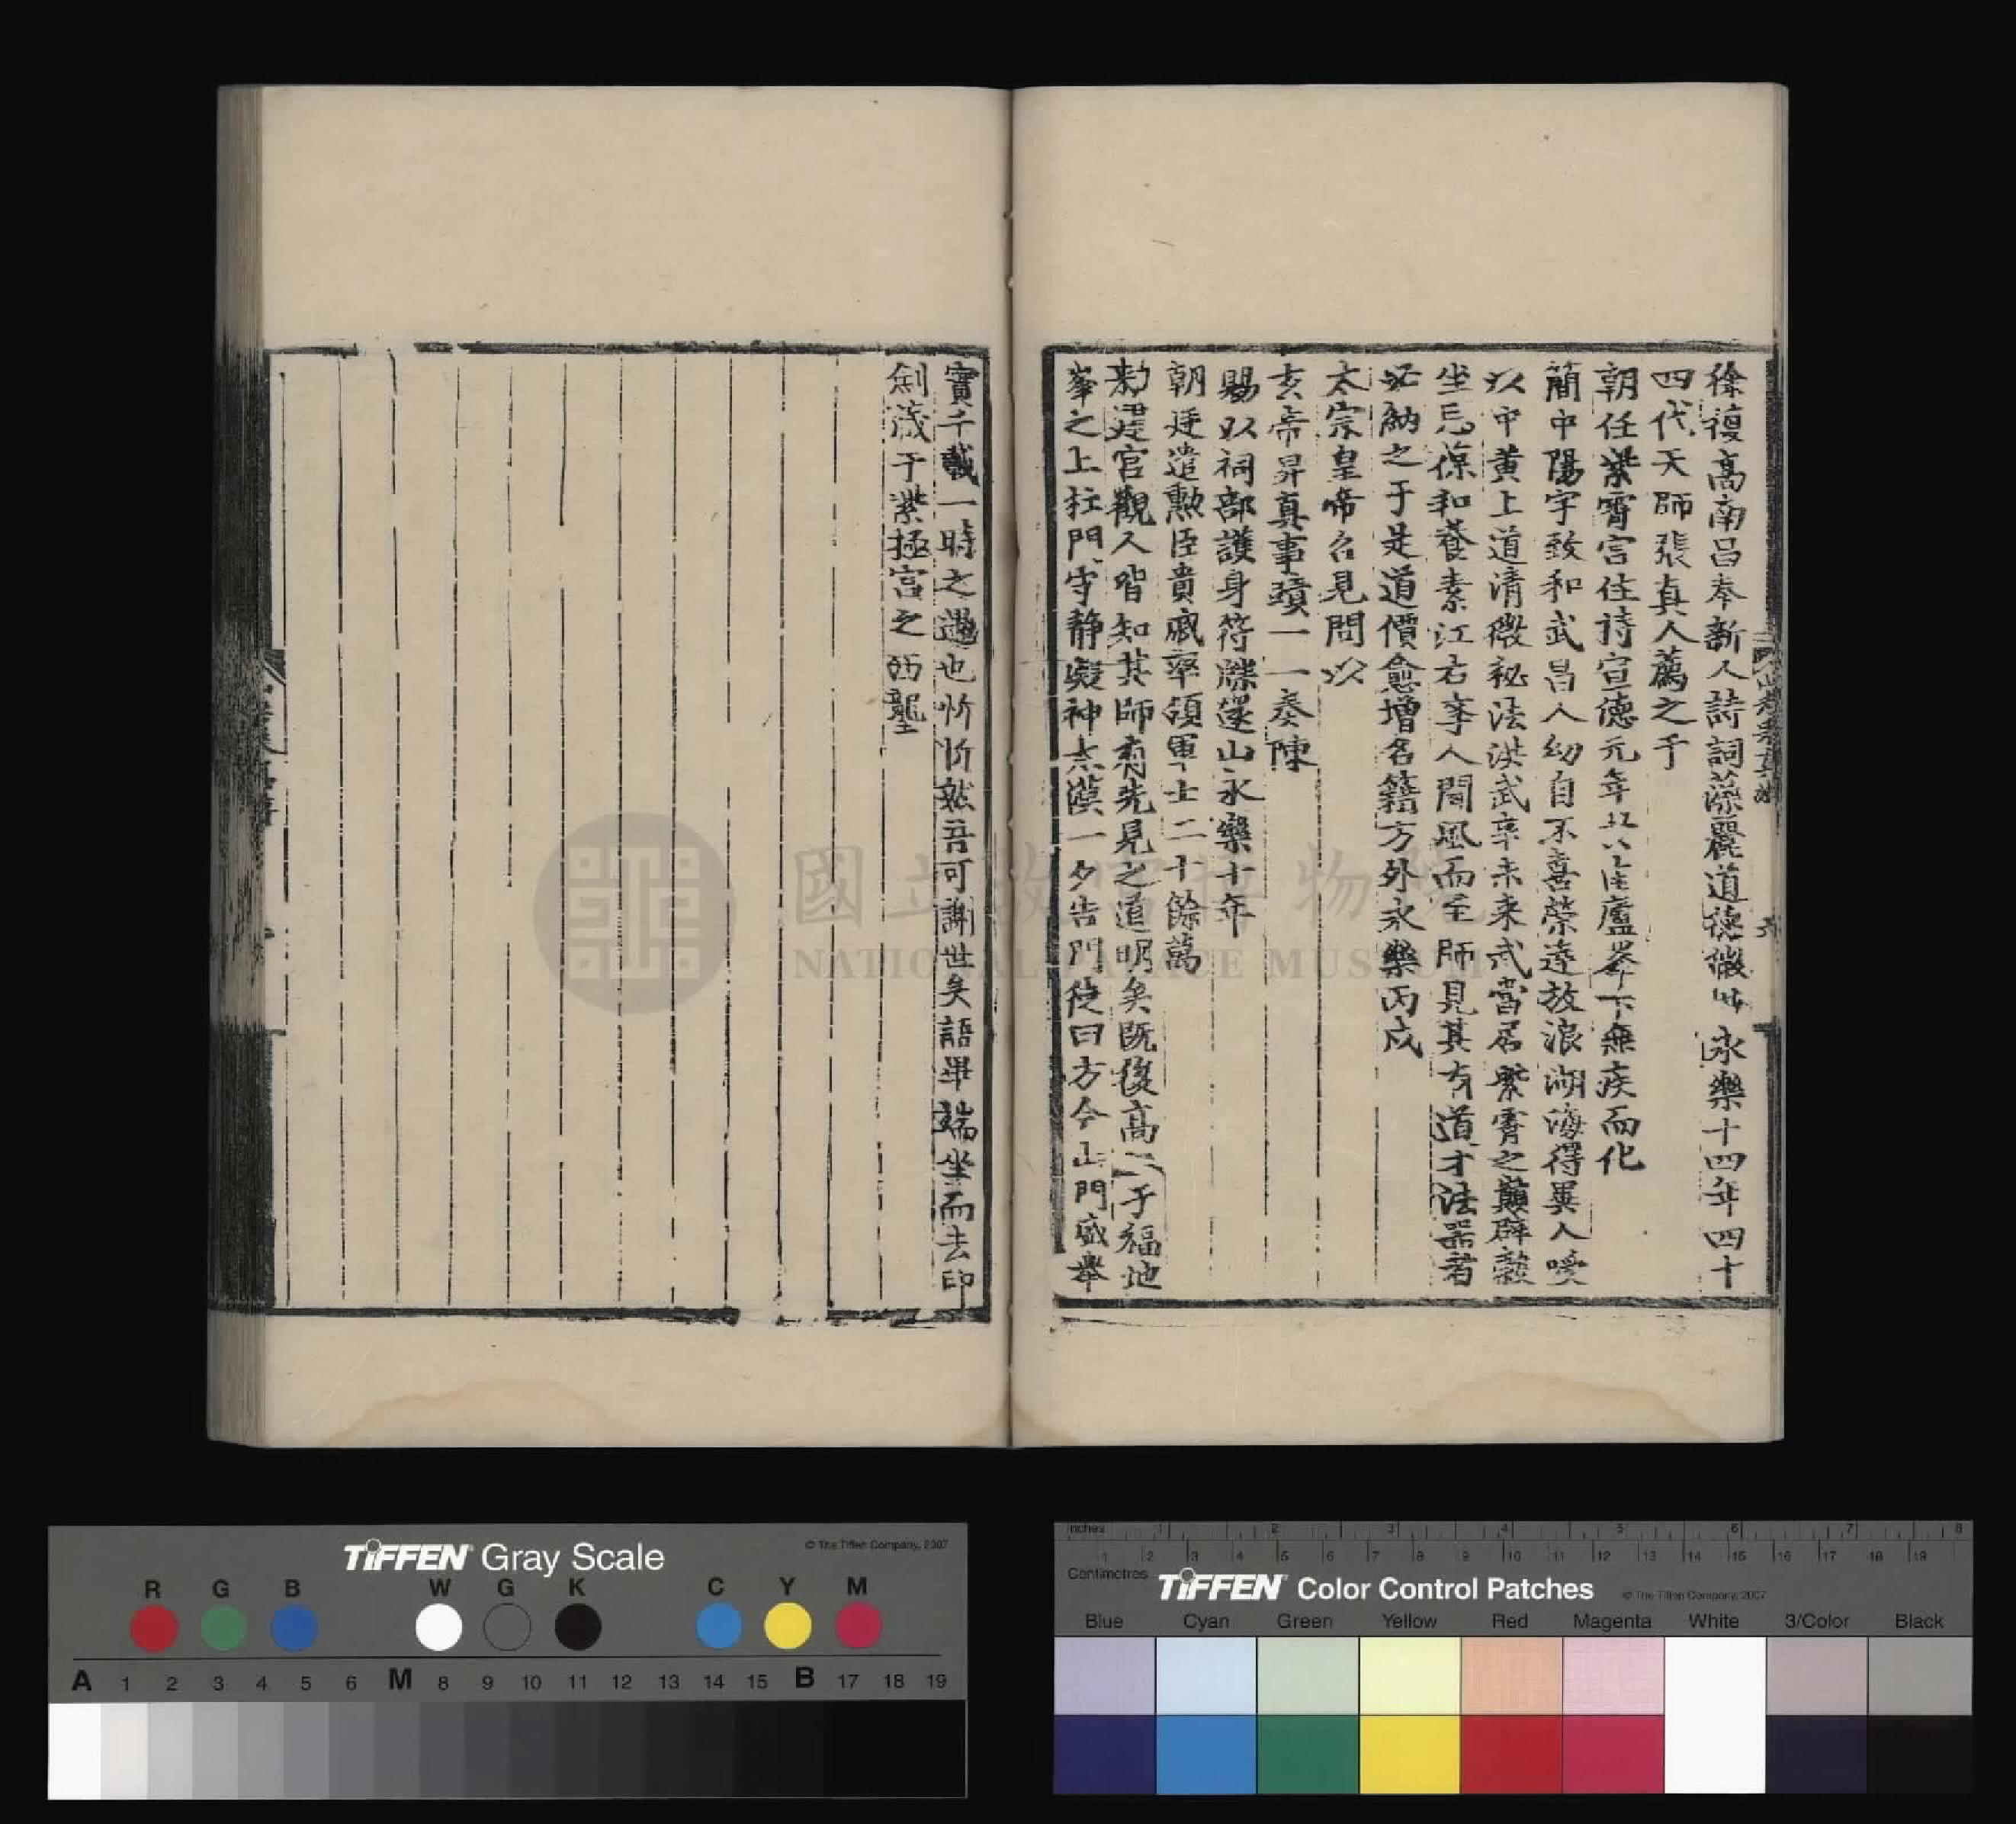 徐復高南昌奉新人詩詞藻麗道德微 永樂十四年四十
四代天師張真人薦之于
朝任紫霄宫住持宣德元年 廬峯下無疾而化
簡中陽字致和武昌人幼自不喜榮達放浪湖海得異人唼
以中黄上道清微秘法洪武辛未来武當居紫霄之巔辟穀
坐忘葆和養素江右李人聞風而至師見其有道才法器者
必納之于是道價愈增名籍方外永樂丙戍
太宗皇帝召見問以
玄帝昇真事蹟一一奏陳
賜以祠部護身符牒還山永樂十年
朝廷遣勲臣貴戚率領軍士二十餘萬
勑建宫觀人皆知其師有先見之道明矣既後高 于福地
峯之上拄門守静凝神 漠一夕告門徒曰方今山門盛舉
實千載一時之遇也忻忻然吾可謝世矣語畢端坐而去印
劍蕆于紫極宫之西壟
國立故宮博物院
NATIONAL PALACE MUSEUM
TIFFEN Gray Scale
© The Tiffen Company, 2007
R G B W G K C Y M
A 1 2 3 4 5 6 M 8 9 10 11 12 13 14 15 B 17 18 19
Inches 1 2 3 4 5 6 7 8
1 2 3 4 5 6 7 8 9 10 11 12 13 14 15 16 17 18 19
Centimetres
TIFFEN Color Control Patches
© The Tiffen Company, 2007
Blue Cyan Green Yellow Red Magenta White 3/Color Black